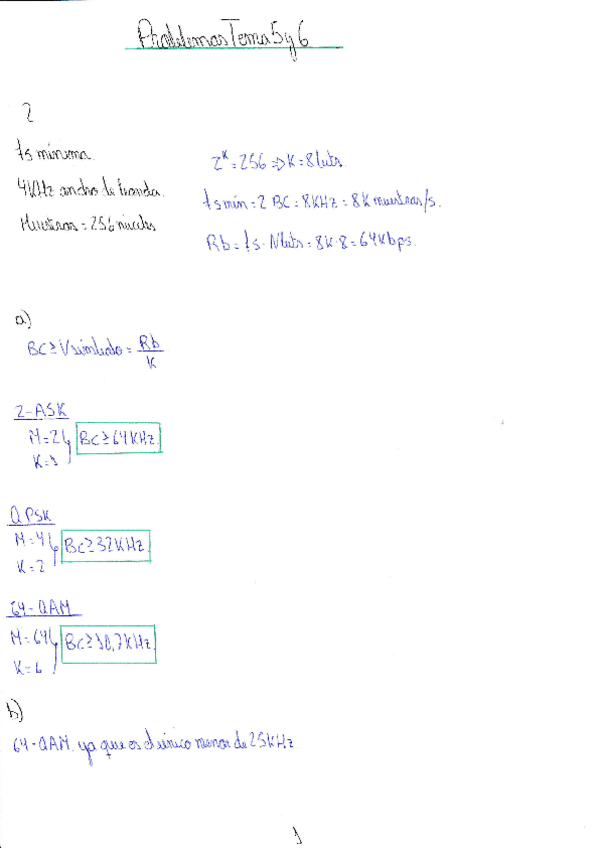 Problemas Tema 5 y 6
2
fs mínima.
4KHz ancho de banda.
Muestras = 256 niveles
2^K = 256 => K = 8 bits.
fs min = 2 BC = 8KHz = 8K muestras/s.
Rb = fs · Nbits = 8K · 8 = 64Kbps.
a)
BC ≥ Vsímbolo = Rb / K
2-ASK
M = 2
K = 1
BC ≥ 64KHz
QPSK
M = 4
K = 2
BC ≥ 32KHz
64-QAM
M = 64
K = 6
BC ≥ 10,7KHz
b)
64-QAM ya que es el único menor de 25KHz
1